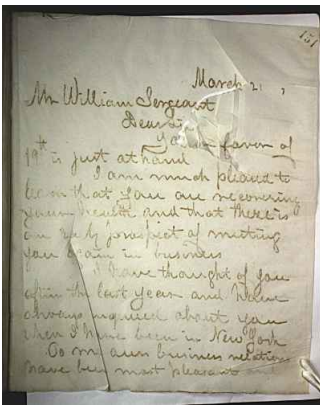 151
March 21,
Mr William Sergeant
Dear Sir
Your favor of
19th is just at hand
I am much pleased to
learn that you are recovering
your health and that there is
an early prospect of meeting
you again in business
I have thought of you
often the last year and have
always inquired about you
when I have been in New York
Our business relations
have been most pleasant and